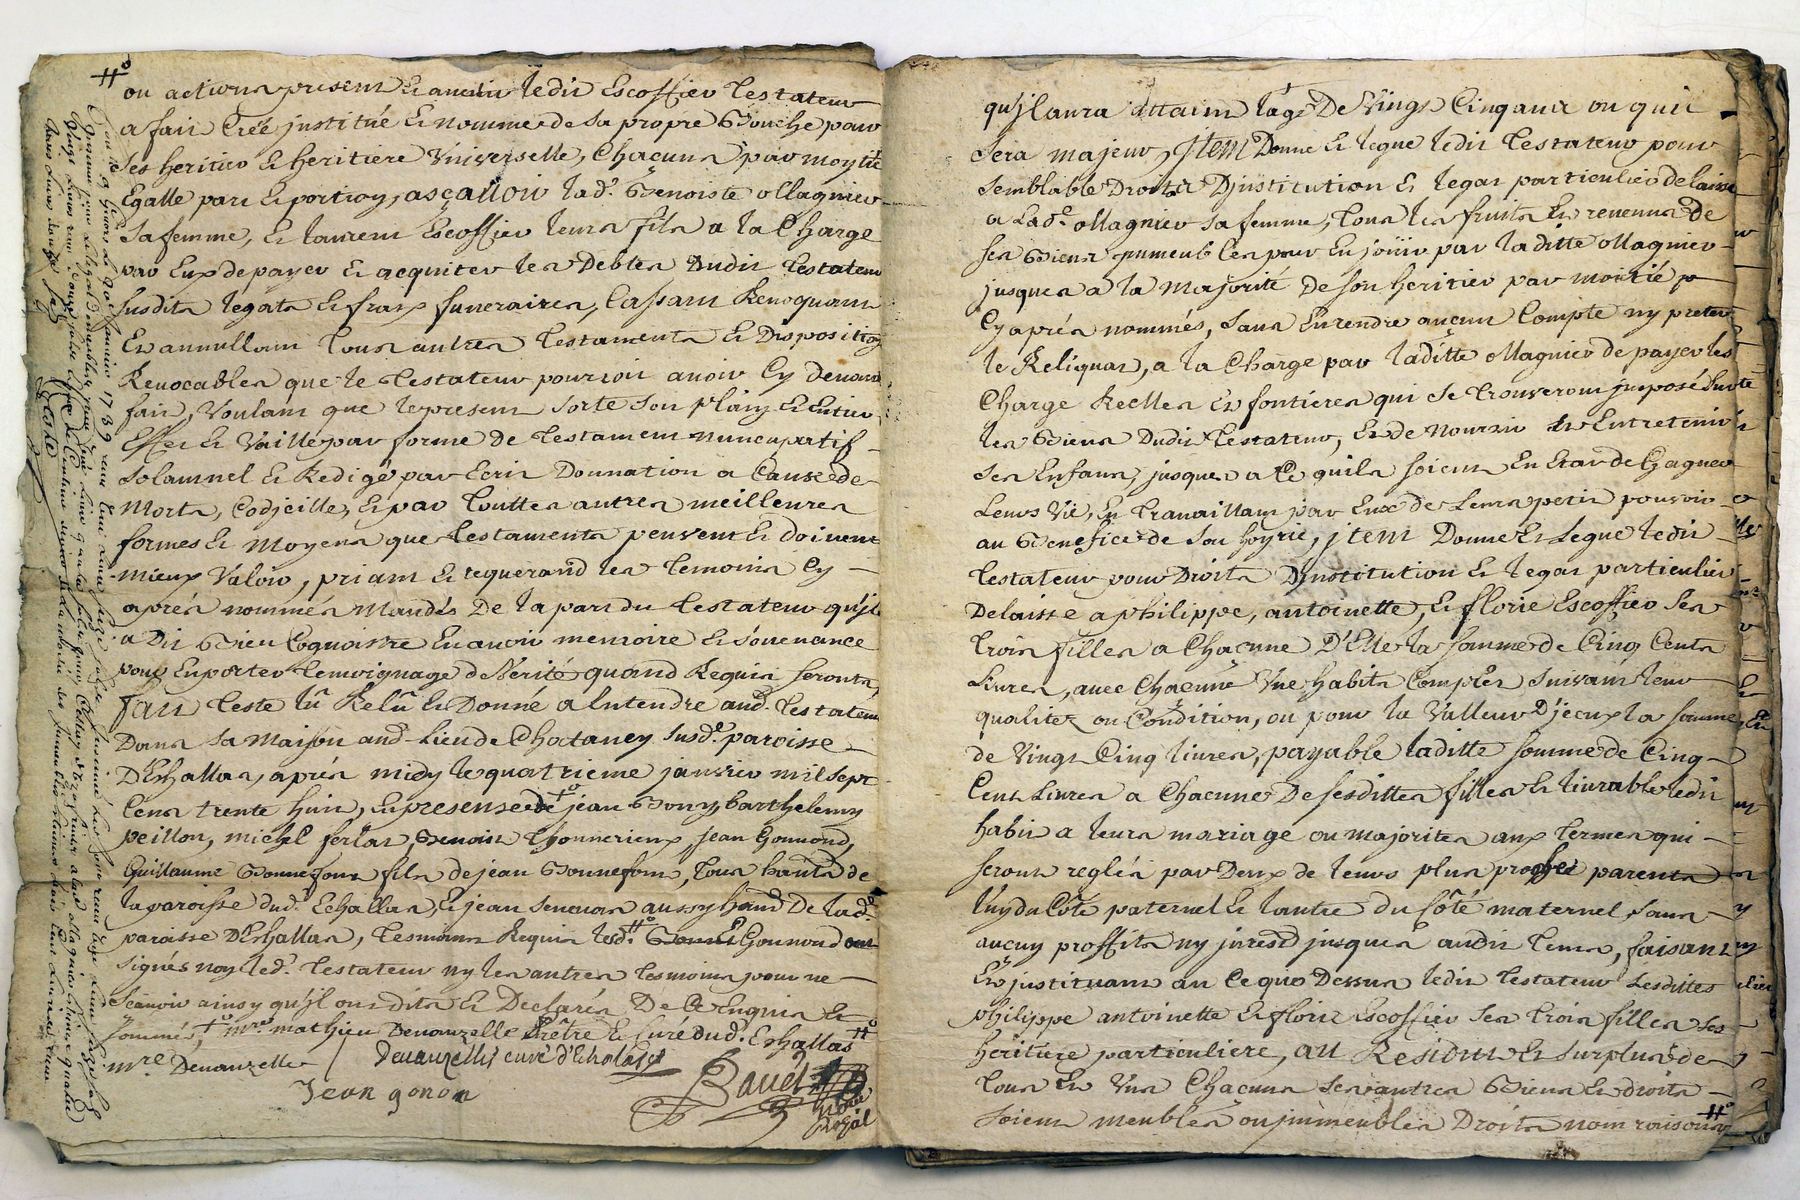 ou actions present et avenir ledit Escoffier Testateur
a fait Créé institué et nommé de sa propre Bouche pour
ses heritier et heritiere Vniverselle, Chacuns par moytié
Egalle part et portion, asçauoir lad.e Benoiste Magnier
sa femme, et laurent Escoffier leurs fils a la Charge
par Eux de payer et acquiter les Debtes Dudit Testateur
susdits legats et fraix funeraires, Cassant Reuoquant
Et annullant tous autres Testaments et Disposition
Reuocables que le Testateur pourroit auoir Cy deuant
fait, Voulant que le present sorte son plain et Entier
Effet et Vaille par forme de Testament nuncupatif
Solamnel et Redigé par Ecrit Donnation a Cause de
Morts, Codjcille, et par Touttes autres meilleures
formes et Moyens que Testaments peuvent et doivent
mieux Valoir, priant et requerand les temoins Cy
aprés nommés Mandés De la part du Testateur qu'jl
a Dit Bien Cognoistre En auoir memoire et souuenance
pour En porter temoignage de Verité quand Requis seronts,
fait Leste lû Relû Et Donné a Entendre aud. Testateur
Dans sa Maison aud. Lieu de Chataney Susd.e paroisse
D'Eshallas, aprés midy le quatrieme janvier mil sept
Cens trente huit, En presence de jean Bony barthelemy
peillon, michel ferlat, Benoist Thonnerieux, jean Gonnond,
Guillaume Bonnefons fils de jean Bonnefons, Tous habitts de
la paroisse dud. Echallas, et jean senevas aussy habitd De lad.e
paroisse D'Eshallas, Tesmoins Requis lesd. Gonnond ont
signés noy led. Testateur ny les autres Tesmoins pour ne
sçauoir ainsy qu'jl ont dits et Declarés De Ce Enquis et
sommés, mre mathieu Deuauzelle Prêtre et Curé dud. Eshallas
mre Deuauzelle Deuauzelle curé d'Echalas
Jean gonon
Bauet
Nore
Royal
qu'jl aura attaint l'age De Vingt Cinq ans ou quil
sera majeur, Jtem Donne et legue ledit Testateur pour
semblable Droits D'justitution et legat particulier delaisse
a Lad.e Magnier sa femme, tous les fruits et reuenus de
ses Biens jmmeubles pour En joüir par laditte Magnier
jusques a la Majorité De son heritier par moitié
Cy aprés nommés, sans En rendre aucun Compte ny preter
le Reliquat, a la Charge par laditte Magnier de payer les
Charge Reelles et fontieres qui se trouveront jmposé sur
les Biens Dudit Testateur, et de nourrir et Entretenir
ses Enfans jusques a Ce quils soient En Etat de Gagner
Leurs Vie, En trauaillant par Eux de Leurs petit pouvoir
au Benefice de son hoyrie, jtem Donne et Legue ledit
Testateur pour Droits D'institution et legat particulier
Delaisse a philippe, antoinette, et florie Escoffier ses
trois filles a Chacune D'Elle la somme de Cinq Cents
Liures, auec Chacune Vne habits Complet suivant leur
qualitez ou Condition, ou pour la Valleur D'jceux la somme
de Vingt Cinq liures, payable laditte somme de Cinq
Cent Liures a Chacune De sesdittes filles et liurable ledit
habit a leurs mariage ou majorites aux termes qui
seront reglés par Deux de leurs plus proches parents
l'uy du Côté paternel et l'autre du Côté maternel sans
aucuy proffits ny jnterest jusques audit tems, faisant
Et justituant au Ce que Dessus ledit Testateur lesdittes
philippe antoinette et florie Escoffier ses trois filles ses
heritiere particuliere, au Residue et surplus de
tous et Vns Chacuns ses autres Biens et droits
soient meubles ou jmmeubles Droits nom raisons